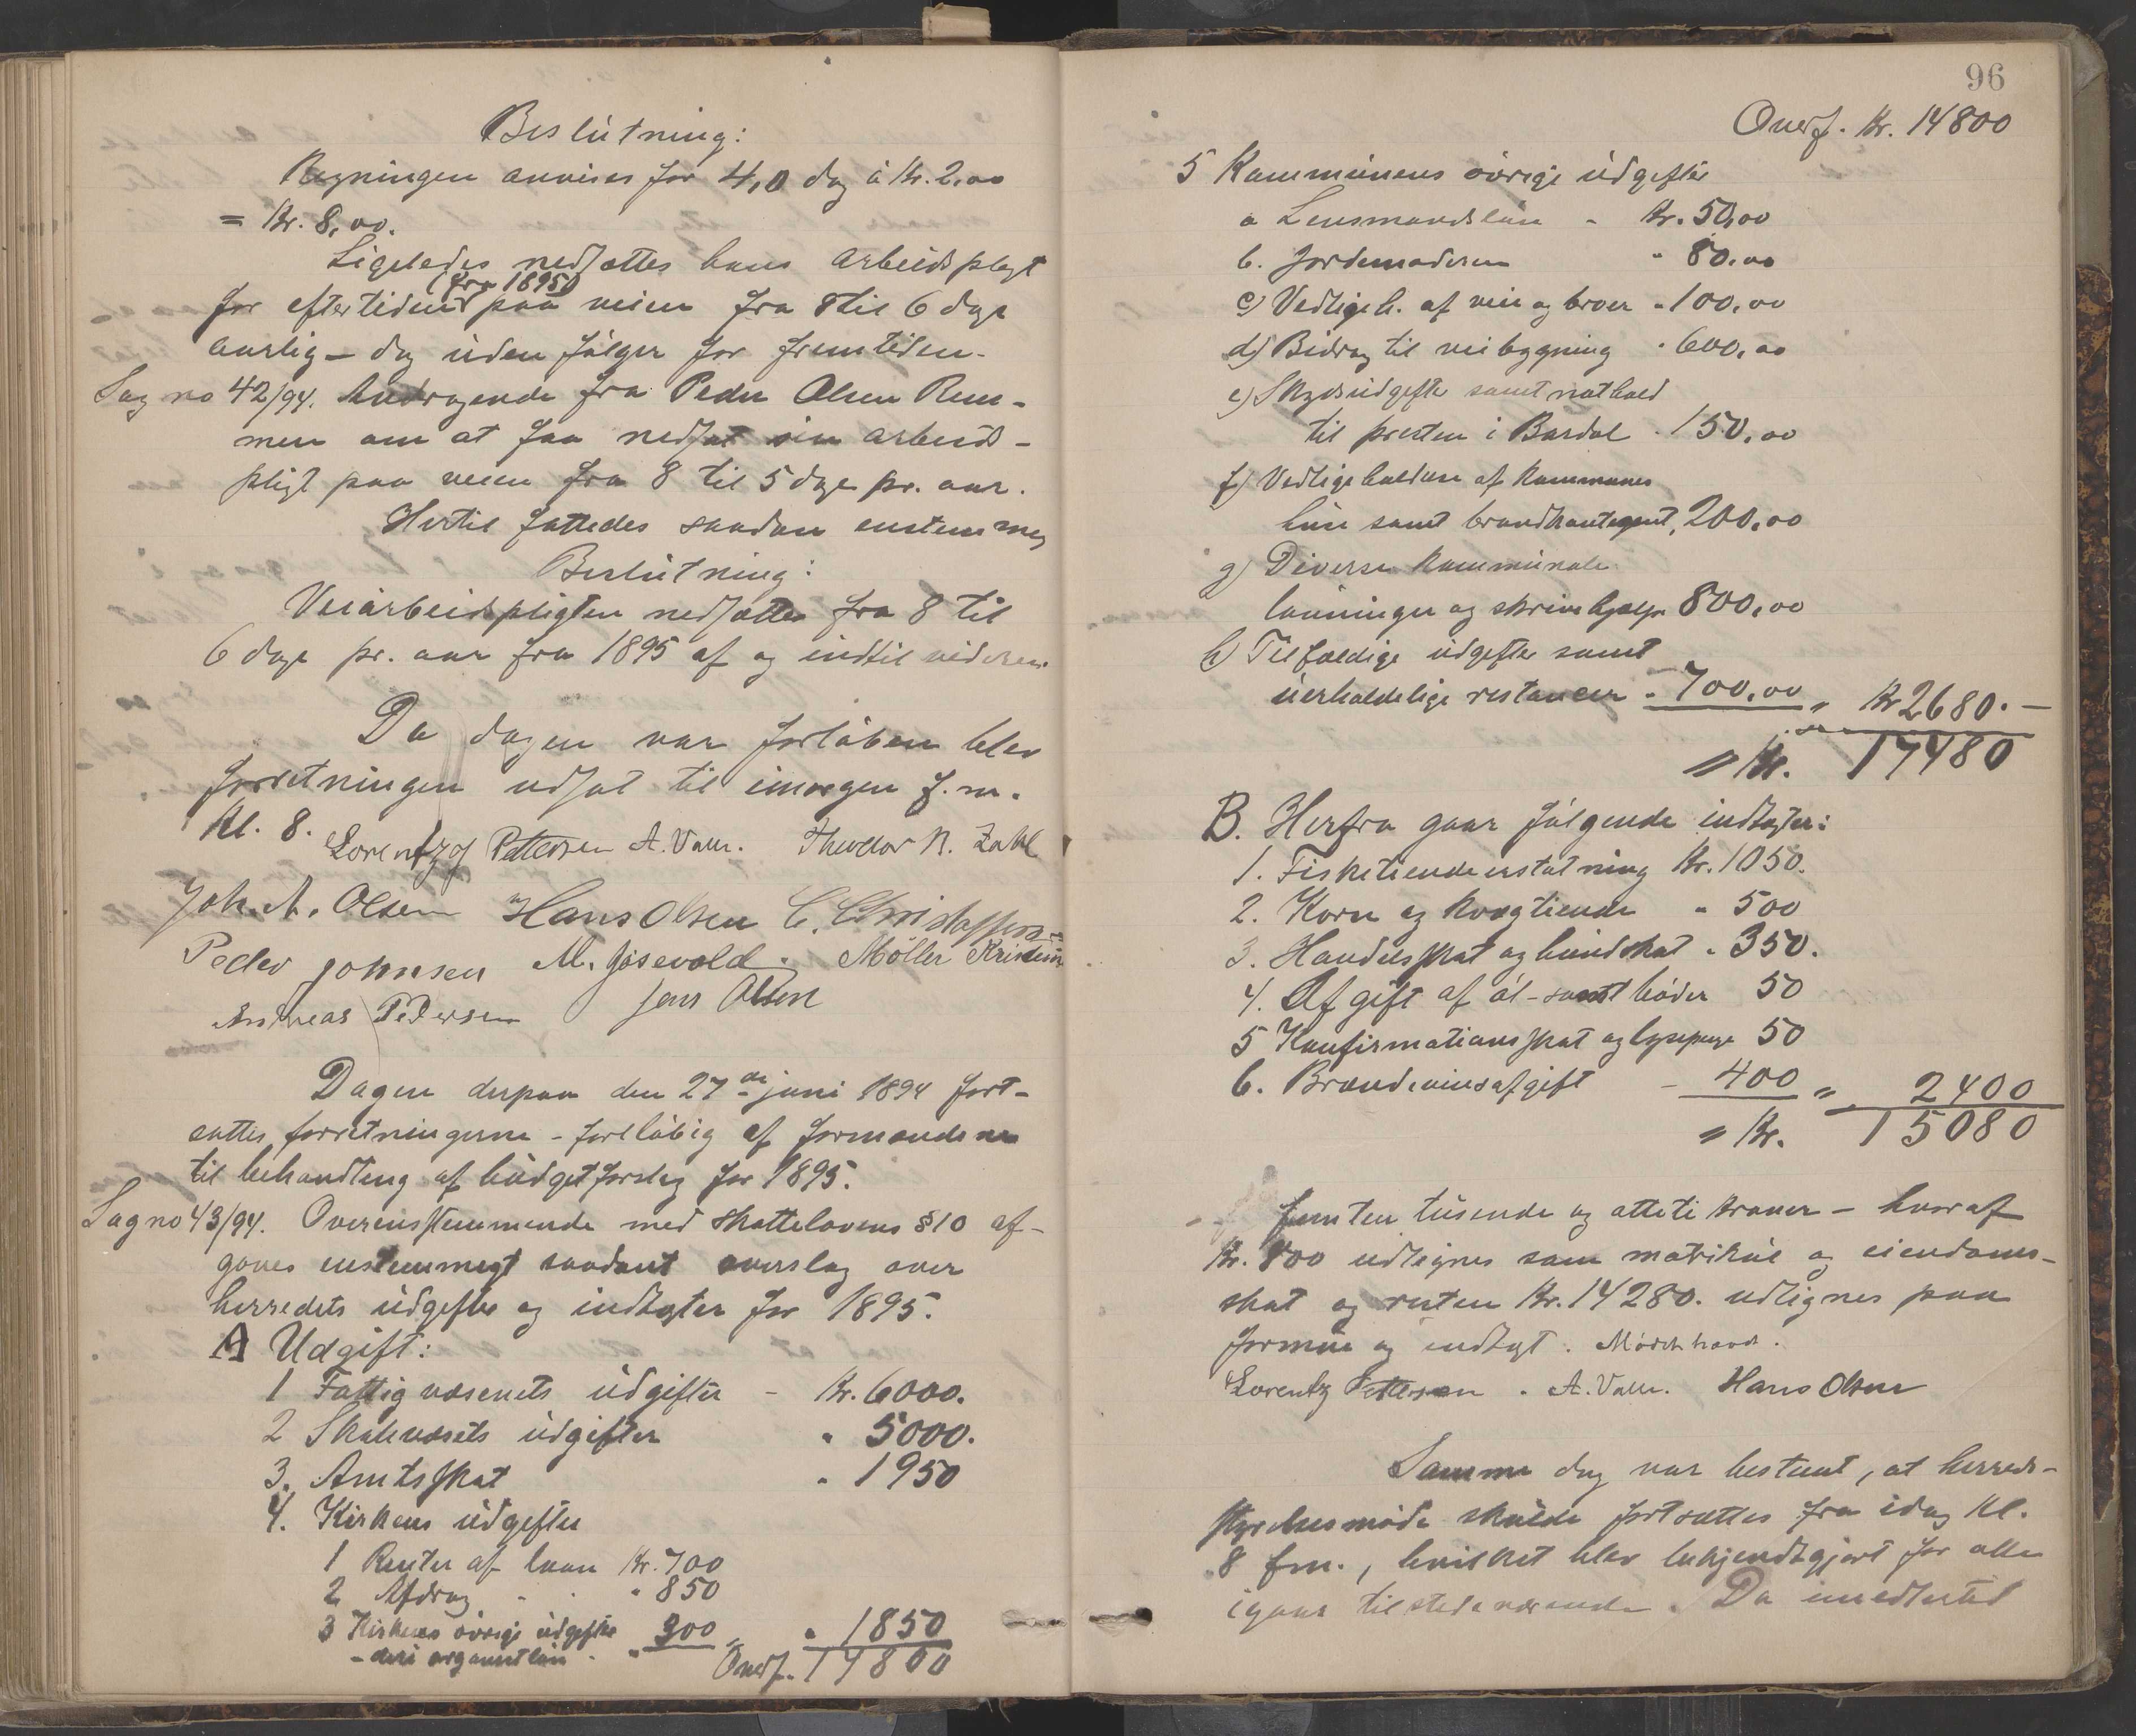 Beslutning:
Regningen anvises for 4,0 dag à Kr. 2,00
= Kr. 8,00.
Ligeledes nedsættes hans arbeidspligt
(fra 1895)
for eftertiden paa veien fra 8 til 6 dage
aarlig – dog uden følger for fremtiden.
Sag no 42/94. Andragende fra Peder Olsen Rem-
men om at faa nedsat sin arbeids-
pligt paa veien fra 8 til 5 dage pr. aar.
Hertil fattedes saadan enstemmig
Beslutning:
Veiarbeidspligten nedsættes fra 8 til
6 dage pr. aar fra 1895 af og indtil videre.
Da dagen var forløben blev
forretningen udsat til imorgen f.m.
Kl. 8.
Lorentz J Pettersen A. Valle. Theodor N. Zahl
Joh. A. Olsen Hans Olsen C. Christoffersen
Peder Johnsen M. Jøsevold. Møller Kristensen
Andreas Pedersen Jens Olsen
Dagen derpaa den 27de juni 1894 fort-
sattes forretningerne – foreløbig af formændene
til behandling af budgetforslag for 1895.
Sag no 43/94. Overensstemmende med skattelovens §10 af-
gaves enstemmigt saadant overslag over
herredets udgifter og indtægter for 1895.
A Udgift:
1 Fattigvæsenets udgifter – Kr. 6000.
2 Skolevæsets udgifter " 5000.
3. Amtsskat " 1950
4. Kirkens udgifter
1 Renter af laan Kr. 700
2 Afdrag " " 850
3 Kirkens øvrige udgifter 300 " " 1850
– deri organistløn
Overf. 14800
96
Overf. Kr. 14800
5 Kommunens øvrige udgifter
a Lensmandsløn – Kr. 50,00
b. Jordemoderen " 80,00
c) Vedligeh. af veie og broer " 100,00
d) Bidrag til veibygning " 600,00
e) Skydsudgifter samt nathold
til presten i Bardal " 150,00
f) Vedligeholdelse af kommunes
hus samt brandkontegent, 200,00
g) Diverse kommunale
lønninger og skrivehjælp 800,00
h) Tilfældige udgifter samt
uerholdelige restancer " 700,00 " Kr 2680. –
= Kr. 17480
B. Herfra gaar følgende indtægter:
1. Fisketiendeerstatning Kr. 1050.
2. Korn og kvægtiende " 500
3. Handelsskat og hundskat " 350.
4. Afgift af øl – samt bøder 50
5 Konfirmationsskat og lysepenge 50
6. Brændevinsafgift – 400 " 2400
= Kr. 15080
femten tusende og otteti kroner – hvoraf
Kr. 800 udlignes som matrikul og eiendoms-
skat og resten Kr. 14280. udlignes paa
formue og indtægt. Mörch havd.
Lorentz Pettersen . A. Valle. Hans Olsen
Samme dag var bestemt, at herreds-
styrelsesmøde skulde fortsættes fra idag Kl.
8 fm., hvilket blev bekjendtgjort for alle
igaar tilstedeværende. Da imidlertid